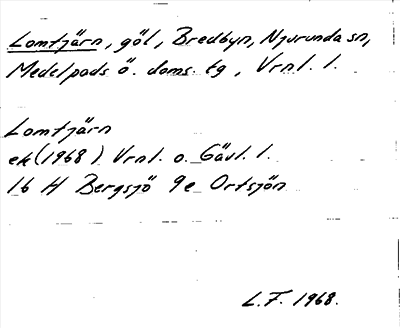 Lomtjärn, göl, Bredbyn, Njurunda sn,
Medelpads ö. doms. tg, Vrnl. l.
Lomtjärn
ek (1968) Vrnl. o. Gävl. l.
16 H Bergsjö 9e Ortsjön
L.F. 1968.